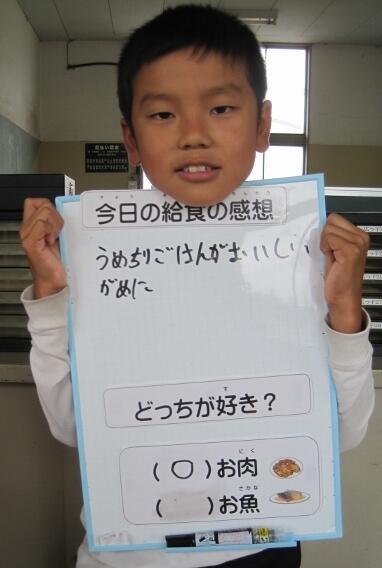 今日の給食の感想
うめちりごはんがおいしい
がめに
どっちが好き？
(○)お肉
( )お魚